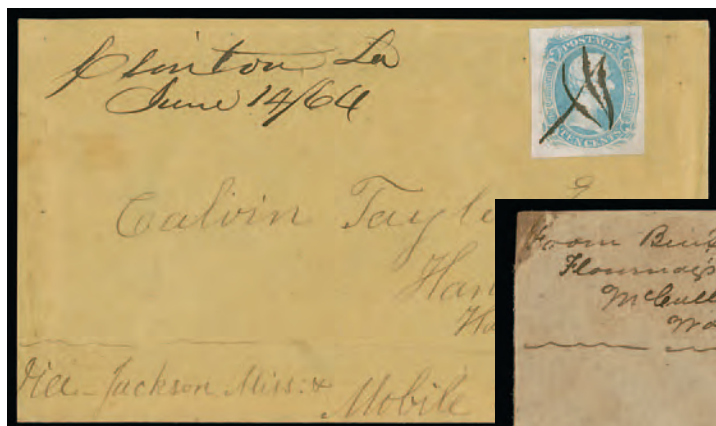 Clinton La
June 14/64
POSTAGE
TEN CENTS
Calvin Taylo
Han
Ha
Via Jackson Miss: &
Mobile
From Benj
Flournoy's
McCull